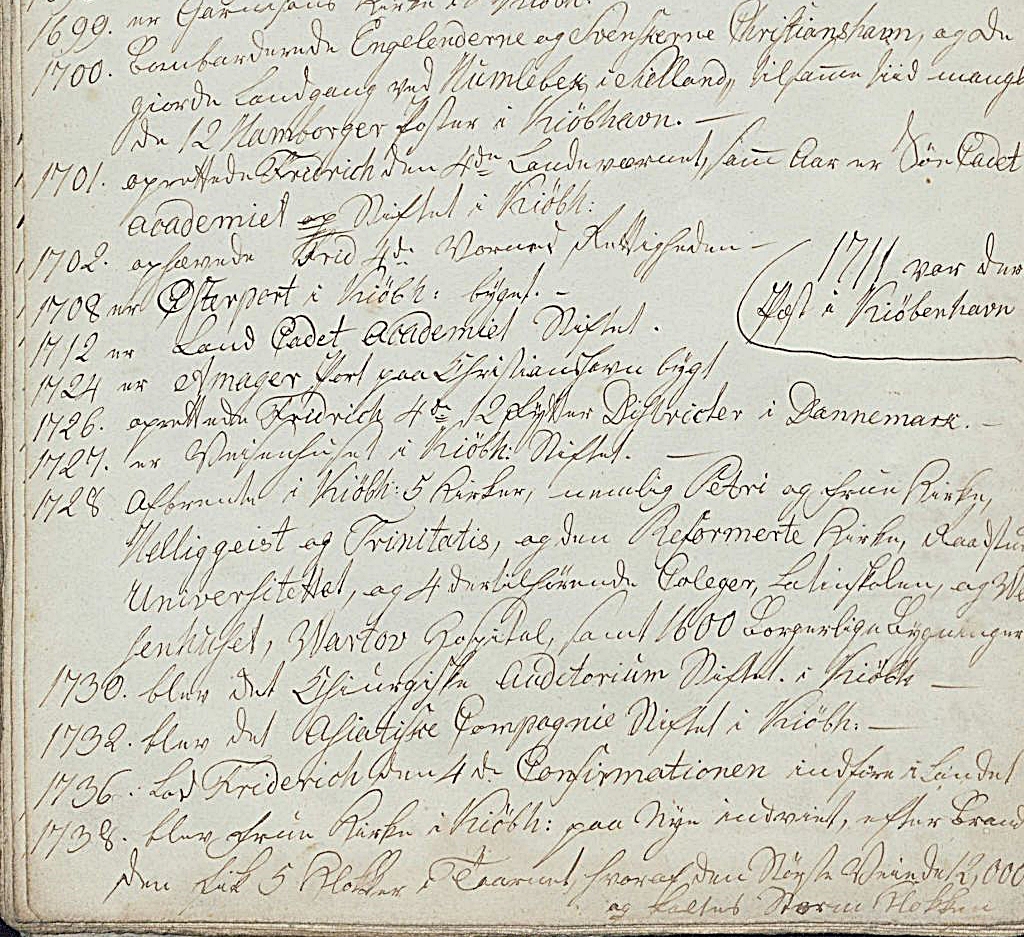 1699. er Garnisons Kirke i Kiöbh:
1700. Bombarderede Engelenderne og Svenskerne Christianshavn, og De
giorde Landgang ved Humlebek i Sielland, tilsamme tiid mangl
de 12 Hamborger Poster i Kiöbhavn. —
1701. oprettede Fridrich den 4de Landeværnet, samme Aar er Söe Cadet
Academiet op Stiftet i Kiöbh:
1702. ophævede Frid 4de Vorned Rettigheden —
1711 var der
1708 er Østerport i Kiöbh: bÿget. —
Pest i Kiöbenhavn
1712 er Land Cadet Academiet Stiftet.
1724 er Amager Port paa Christianshavn bÿgt
1726. oprettede Fridrich 4de 12 Rÿtter Districter i Dannemark. —
1727. er Veisenhuset i Kiöbh: Stiftet. —
1728 Afbrendte i Kiöbh: 5 Kirker, nemlig Petri og Frue Kirke,
Helliggeist og Trinitatis, og den Reformerte Kirke, Raadstu
Universitettet, og 4 dertilhørende Coleger, Latinskolen, og We
senhuset, Wartov Hospital, samt 1600 Borgerlige Bÿgninger
1730. blev det Chiurgiske Auditorium Stiftet. i Kiöbh —
1732. blev det Asiatiske Compagnie Stiftet i Kiöbh: —
1736. lod Friderich den 4de Confirmationen indføre i Landet
1738. blev Frue Kirke i Kiöbh: paa Nÿe indviet, efter Brand
den fik 5 Klokker i Taarnet, hvoraf den Störste Veiede 12,000
og kaltes Storm Klokken